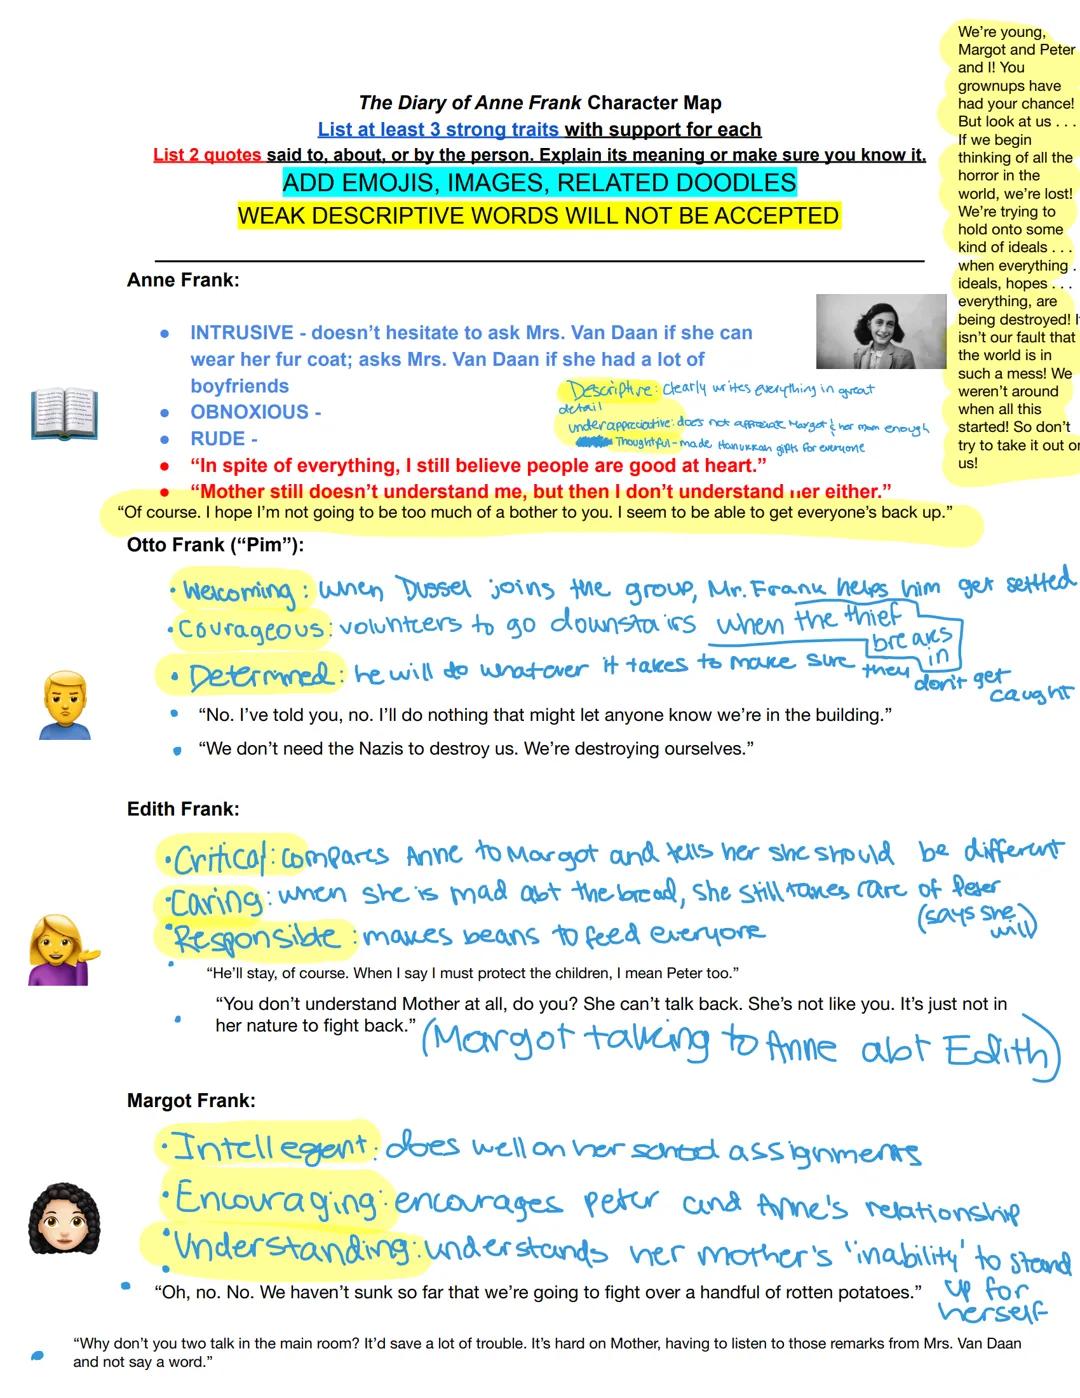 The Diary of Anne Frank Character Map
List at least 3 strong traits with support for each
List 2 quotes said to, about, or by the person. Explain its meaning or make sure you know it.
ADD EMOJIS, IMAGES, RELATED DOODLES
WEAK DESCRIPTIVE WORDS WILL NOT BE ACCEPTED
We're young,
Margot and Peter
and I! You
grownups have
had your chance!
But look at us . . .
If we begin
thinking of all the
horror in the
world, we're lost!
We're trying to
hold onto some
kind of ideals . . .
when everything .
ideals, hopes . . .
everything, are
being destroyed! I
isn't our fault that
the world is in
such a mess! We
weren't around
when all this
started! So don't
try to take it out
us!
Anne Frank:
INTRUSIVE - doesn't hesitate to ask Mrs. Van Daan if she can
wear her fur coat; asks Mrs. Van Daan if she had a lot of
boyfriends
OBNOXIOUS -
RUDE -
Descriptive: Clearly writes everything in great
detail
underappreciative: does not appreciate Margot & her mom enough
Thoughtful - made Hanukkah gifts for everyone
"In spite of everything, I still believe people are good at heart."
"Mother still doesn't understand me, but then I don't understand her either."
"Of course. I hope I'm not going to be too much of a bother to you. I seem to be able to get everyone's back up."
Otto Frank ("Pim"):
• Welcoming: when Dussel joins the group, Mr. Frank helps him get settled
• Courageous: volunteers to go downstairs when the thief
breaks
in
• Determined: he will do whatever it takes to make sure they
don't get
caught
• "No. I've told you, no. I'll do nothing that might let anyone know we're in the building."
• "We don't need the Nazis to destroy us. We're destroying ourselves."
Edith Frank:
• Critical: compares Anne to Margot and tells her she should be different
• Caring: when she is mad abt the bread, she still takes care of Peter
(says she
will)
• Responsible: makes beans to feed everyone
• "He'll stay, of course. When I say I must protect the children, I mean Peter too."
• "You don't understand Mother at all, do you? She can't talk back. She's not like you. It's just not in
her nature to fight back." (Margot talking to Anne abt Edith)
Margot Frank:
• Intellegent: does well on her school assignments
• Encouraging: encourages Peter and Anne's relationship
• Understanding: understands her mother's 'inability' to stand
up for
herself
• "Oh, no. No. We haven't sunk so far that we're going to fight over a handful of rotten potatoes."
• "Why don't you two talk in the main room? It'd save a lot of trouble. It's hard on Mother, having to listen to those remarks from Mrs. Van Daan
and not say a word."